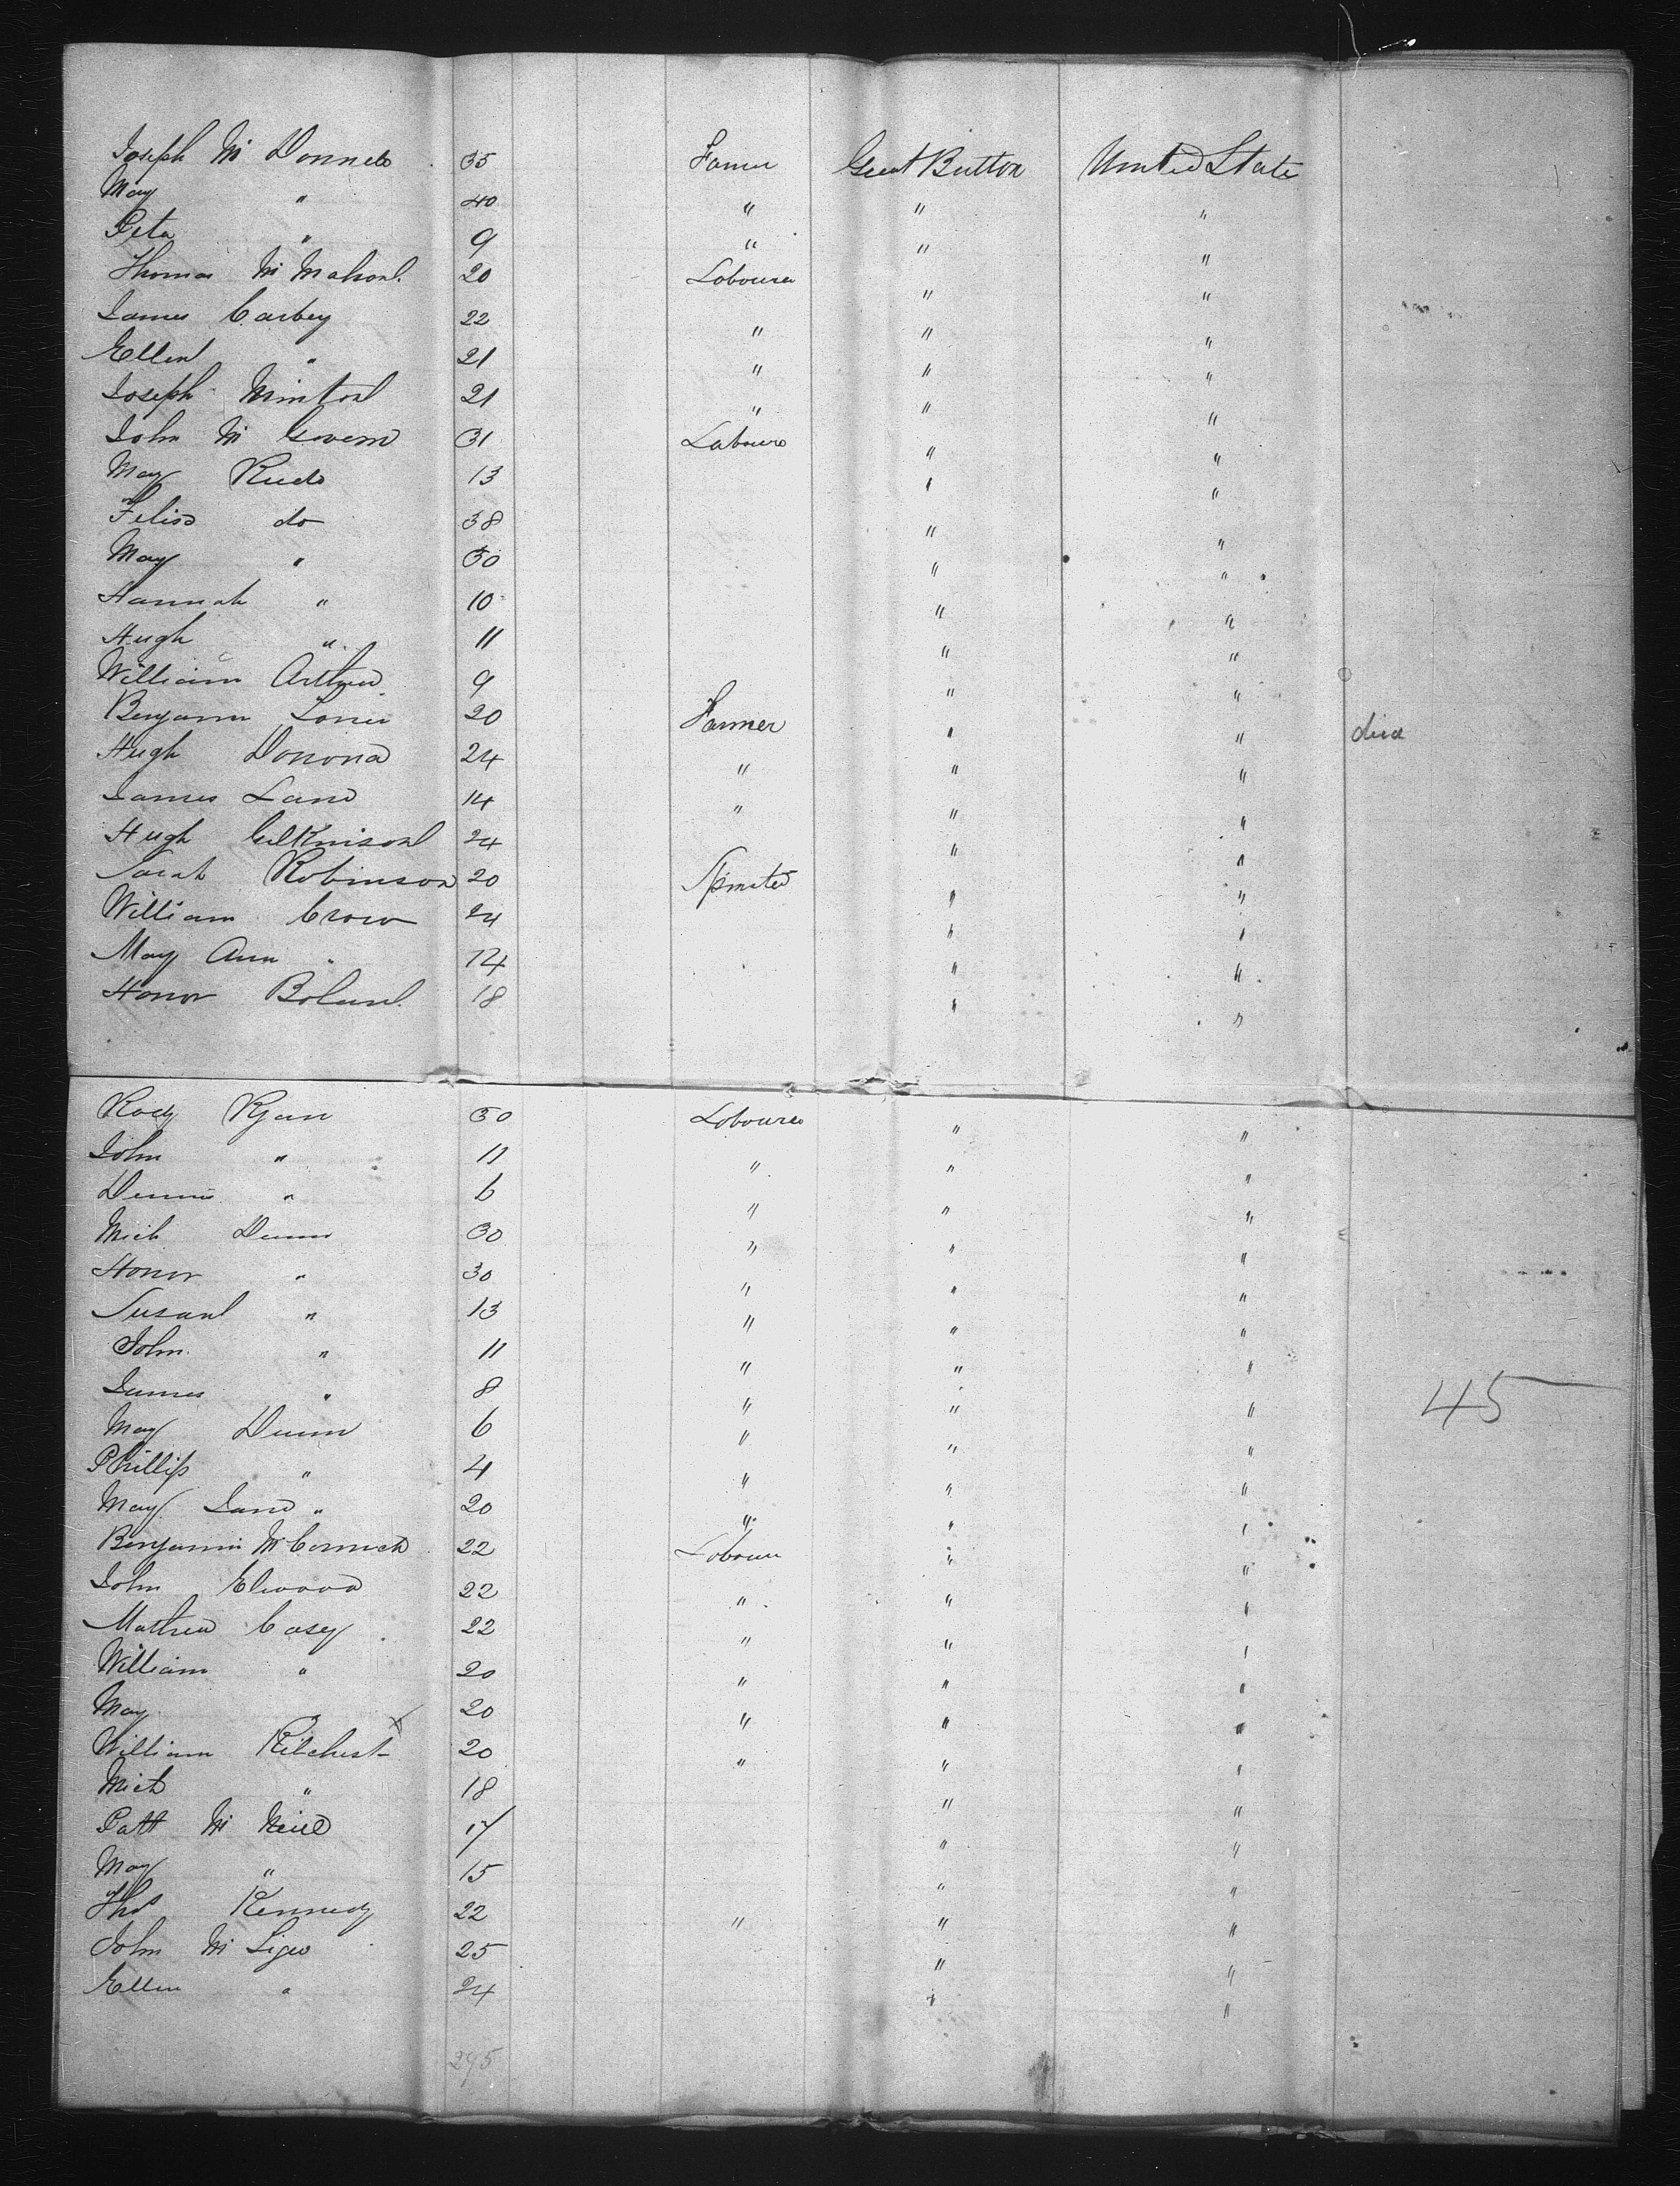 Joseph Mc Donnell 35 Farmer Great Britton United State
Mary " 40 " " "
Peter " 9 " " "
Thomas Mc Mahon 20 Labourer " "
James Carbey 22 " " "
Ellen " 21 " " "
Joseph Minton 21 " " "
John Mc Govern 31 Labourer " "
Mary 13 " "
do 38 " "
Mary " 30 " "
Hannah " 10 " "
Hugh " 11 " "
William Arthur 9 " "
Benjamin 20 Farmer " " died
Hugh 24 " " "
James Lane 14 " " "
Hugh Gilkinson 24 " "
Sarah Robinson 20 Spinster " "
William Crow 24 " "
Mary Ann " 14 " "
Honor Boland 18 " "
Rody Ryan 30 Labourer " "
John " 11 " " "
Dennis " 6 " " "
Mich Dunn 30 " " "
Honor " 30 " " "
Susan " 13 " " "
John " 11 " " "
James " 8 " " "
45
Mary Dunn 6 " " "
Phillip " 4 " " "
Mary Jane " 20 " " "
Benjamin Mc Cormick 22 Labourer " "
John Elwood 22 " " "
Mathew Casey 22 " " "
William " 20 " " "
Mary " 20 " " "
William Kilchrist 20 " " "
Mich " 18 " "
Patt Mc Neill 17 " "
Mary " 15 " "
Thos Kennedy 22 " " "
John Mc 25 " "
Ellen " 24 " "
295